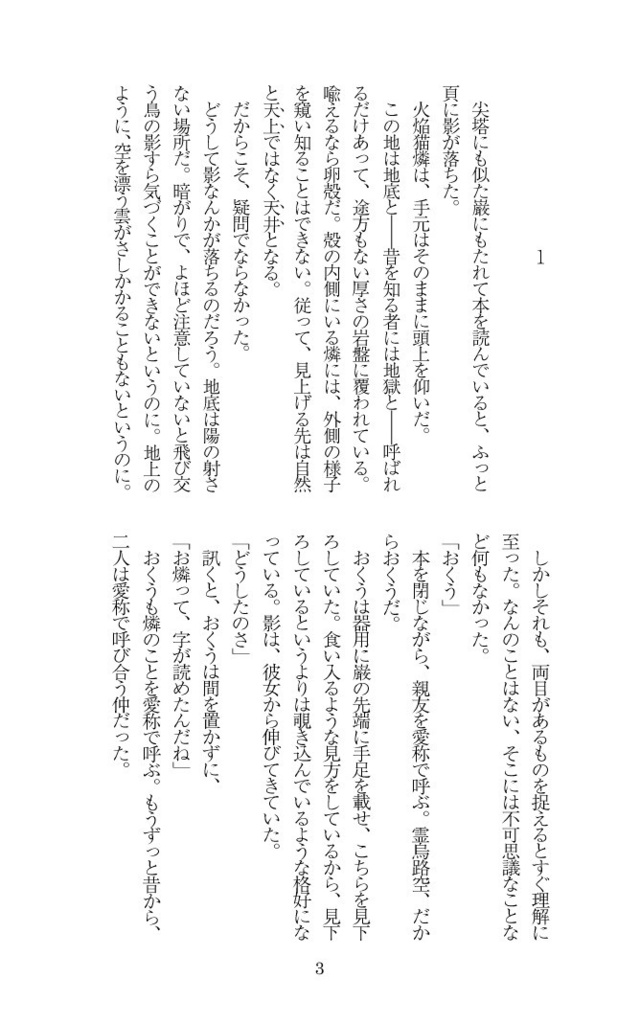 1
　尖塔にも似た巌にもたれて本を読んでいると、ふっと
頁に影が落ちた。
　火焔猫燐は、手元はそのままに頭上を仰いだ。
　この地は地底と――昔を知る者には地獄と――呼ばれ
るだけあって、途方もない厚さの岩盤に覆われている。
喩えるなら卵殻だ。殻の内側にいる燐には、外側の様子
を窺い知ることはできない。従って、見上げる先は自然
と天上ではなく天井となる。
　だからこそ、疑問でならなかった。
　どうして影なんかが落ちるのだろう。地底は陽の射さ
ない場所だ。暗がりで、よほど注意していないと飛び交
う鳥の影すら気づくことができないというのに。地上の
ように、空を漂う雲がさしかかることもないというのに。
　しかしそれも、両目があるものを捉えるとすぐ理解に
至った。なんのことはない、そこには不可思議なことな
ど何もなかった。
「おくう」
　本を閉じながら、親友を愛称で呼ぶ。霊烏路空、だか
らおくうだ。
　おくうは器用に巌の先端に手足を載せ、こちらを見下
ろしていた。食い入るような見方をしているから、見下
ろしているというよりは覗き込んでいるような格好にな
っている。影は、彼女から伸びてきていた。
「どうしたのさ」
　訊くと、おくうは間を置かずに、
「お燐って、字が読めたんだね」
　おくうも燐のことを愛称で呼ぶ。もうずっと昔から、
二人は愛称で呼び合う仲だった。
3